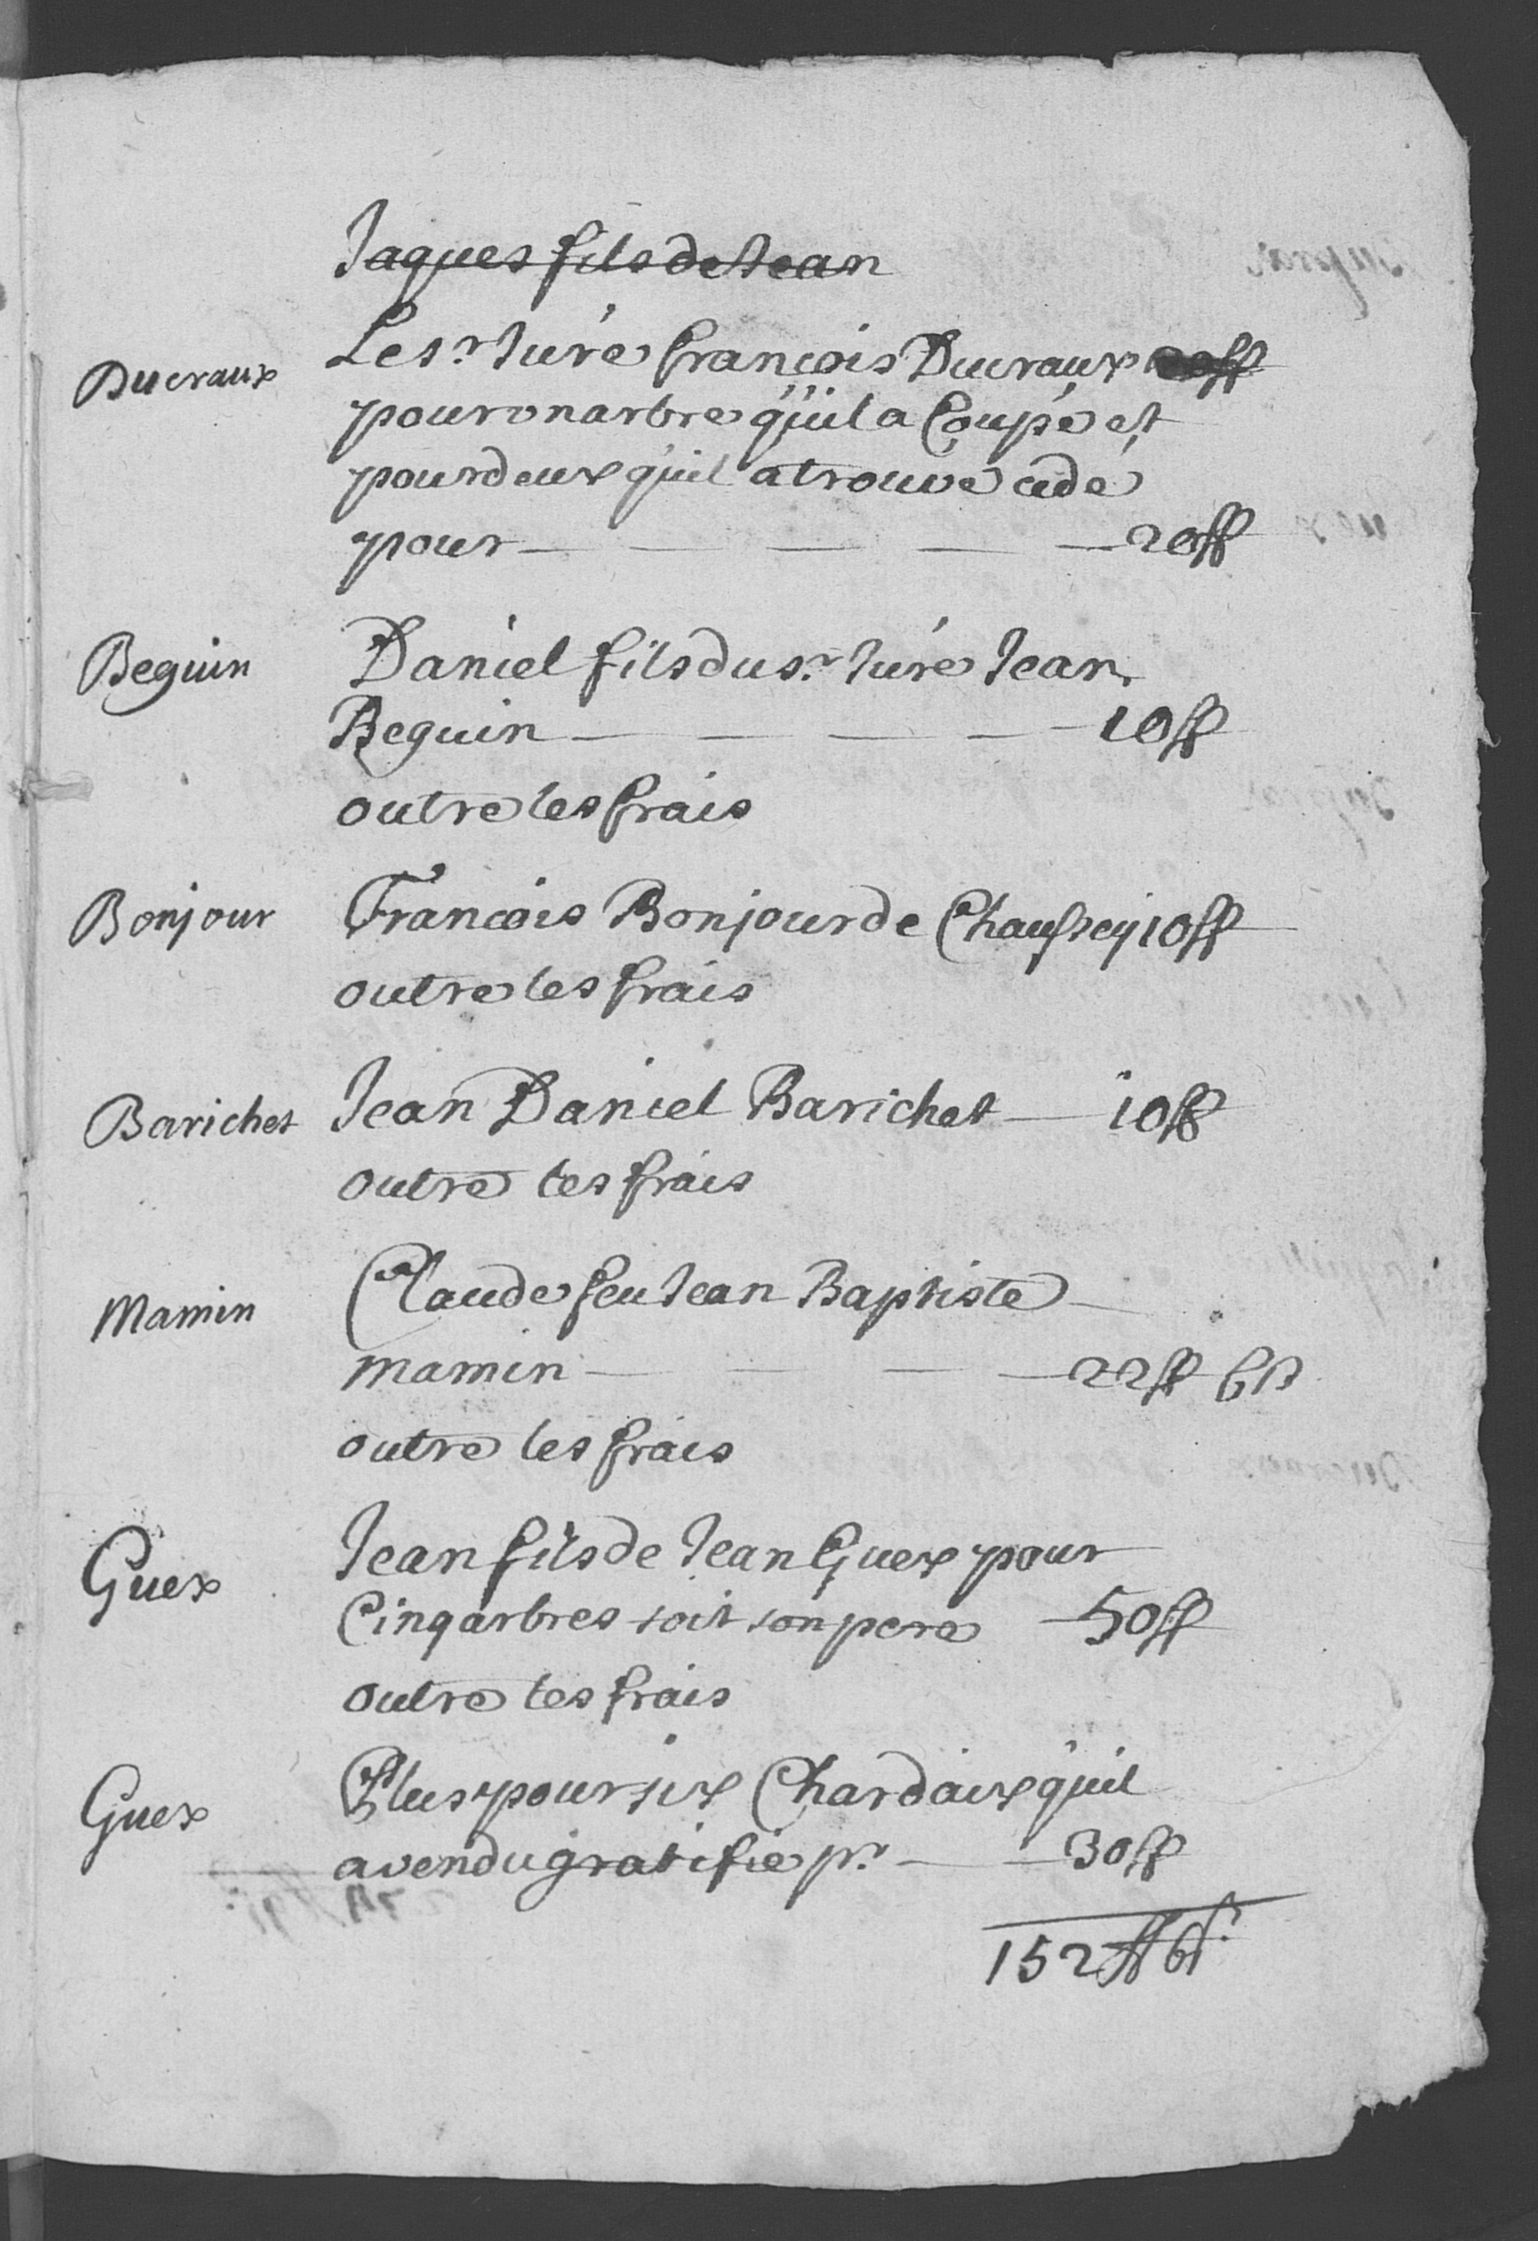 Jaques fils de Jean
Ducraux
Le s.r Juré francois Ducraux 20 ff
pour vn arbre qúil a Coupé et
pour deux qúil a trouvé cédé
pour — — — — — 20 ff
Beguin
Daniel fils du s.r Juré Jean
Beguin — — — — — 10 ff
outre les frais
Bonjour
Francois Bonjour de Chaussey 10 ff
outre les frais
Barichet
Jean Daniel Barichet — 10 ff
outre les frais
Mamin
Claude feu Jean Baptiste
mamin — — — — 22 ff 6 s
outre les frais
Guex
Jean fils de Jean Guex pour
Cinq arbres soit son pere 50 ff
outre les frais
Guex
Plus pour six Chardaix qúil
a vendu gratifié p.r — — 30 ff
152 ff 6 s.